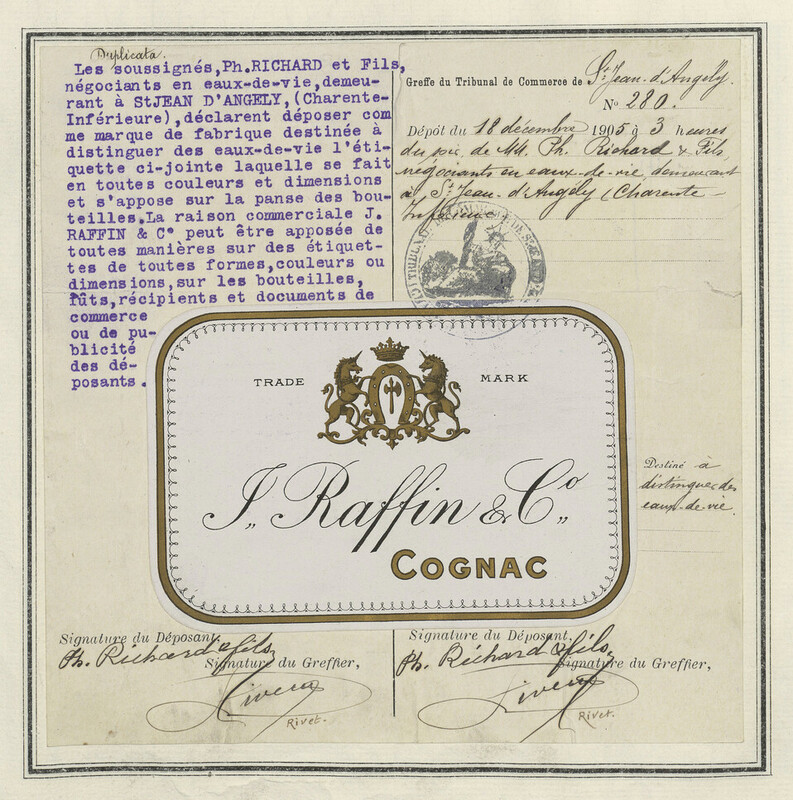 Duplicata.
Les soussignés,Ph.RICHARD et Fils,
négociants en eaux-de-vie,demeu-
rant à StJEAN D'ANGELY,(Charente-
Inférieure),déclarent déposer com
me marque de fabrique destinée à
distinguer des eaux-de-vie l'éti-
quette ci-jointe laquelle se fait
en toutes couleurs et dimensions
et s'appose sur la panse des bou-
teilles.La raison commerciale J.
RAFFIN & Co peut être apposée de
toutes manières sur des étiquet-
tes de toutes formes,couleurs ou
dimensions,sur les bouteilles,
fûts,récipients et documents de
commerce
ou de pu-
blicité
des dé-
posants.
Greffe du Tribunal de Commerce de St Jean-d'Angély.
No 280.
Dépôt du 18 décembre 1905 à 3 heures
du soir, de MM. Ph. Richard & Fils
négociants en eaux-de-vie, demeurant
à St Jean-d'Angély (Charente-
Inférieure
TRADE MARK
J. Raffin & Co
COGNAC
Destiné à
distinguer des
eaux-de-vie.
Signature du Déposant,
Ph. Richard & fils
Signature du Greffier,
Rivet.
Signature du Déposant,
Ph. Richard & fils
Signature du Greffier,
Rivet.